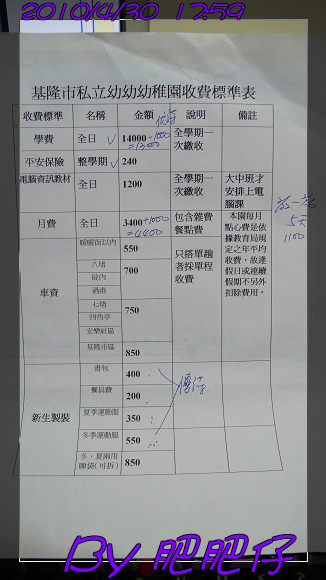 2010/4/30 12:59
基隆市私立幼幼幼稚園收費標準表
收費標準 名稱 金額 說明 備註
學費 全日 ✓ 14000 -1000 =13000 全學期一次繳收
平安保險 整學期 ✓ 240
電腦資訊教材 全日 1200 全學期一次繳收 大中班才安排上電腦課
月費 全日 3400 +1000 =4400 包含雜費餐點費 本園每月點心費是依據教育局規定之年平均收費，故逢假日或連續假期不另外扣除費用。
5天
1100
車資 暖暖街以內 550 只搭單趟者採單程收費
八堵
碇內
過港
700
七堵
四角亭
安樂社區
750
基隆市區 850
新生製裝 書包 400
餐具費 200
夏季運動服 350
冬季運動服 550
冬、夏兩用
睡袋(可拆) 850
By 肥肥仔